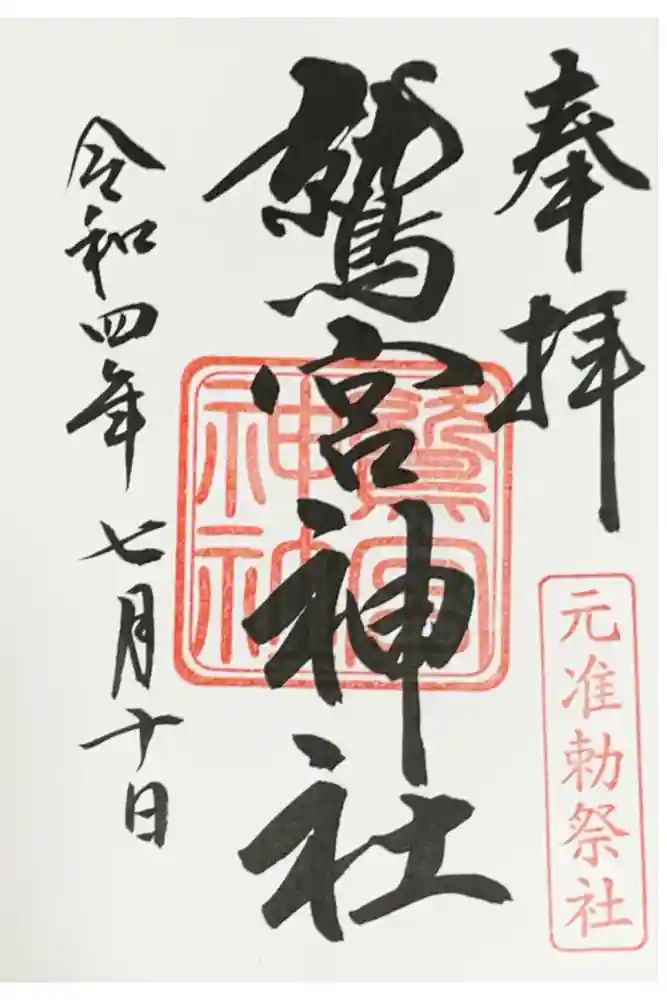 奉拝
元准勅祭社
鷲宮神社
鷲宮神社
令和四年七月十日